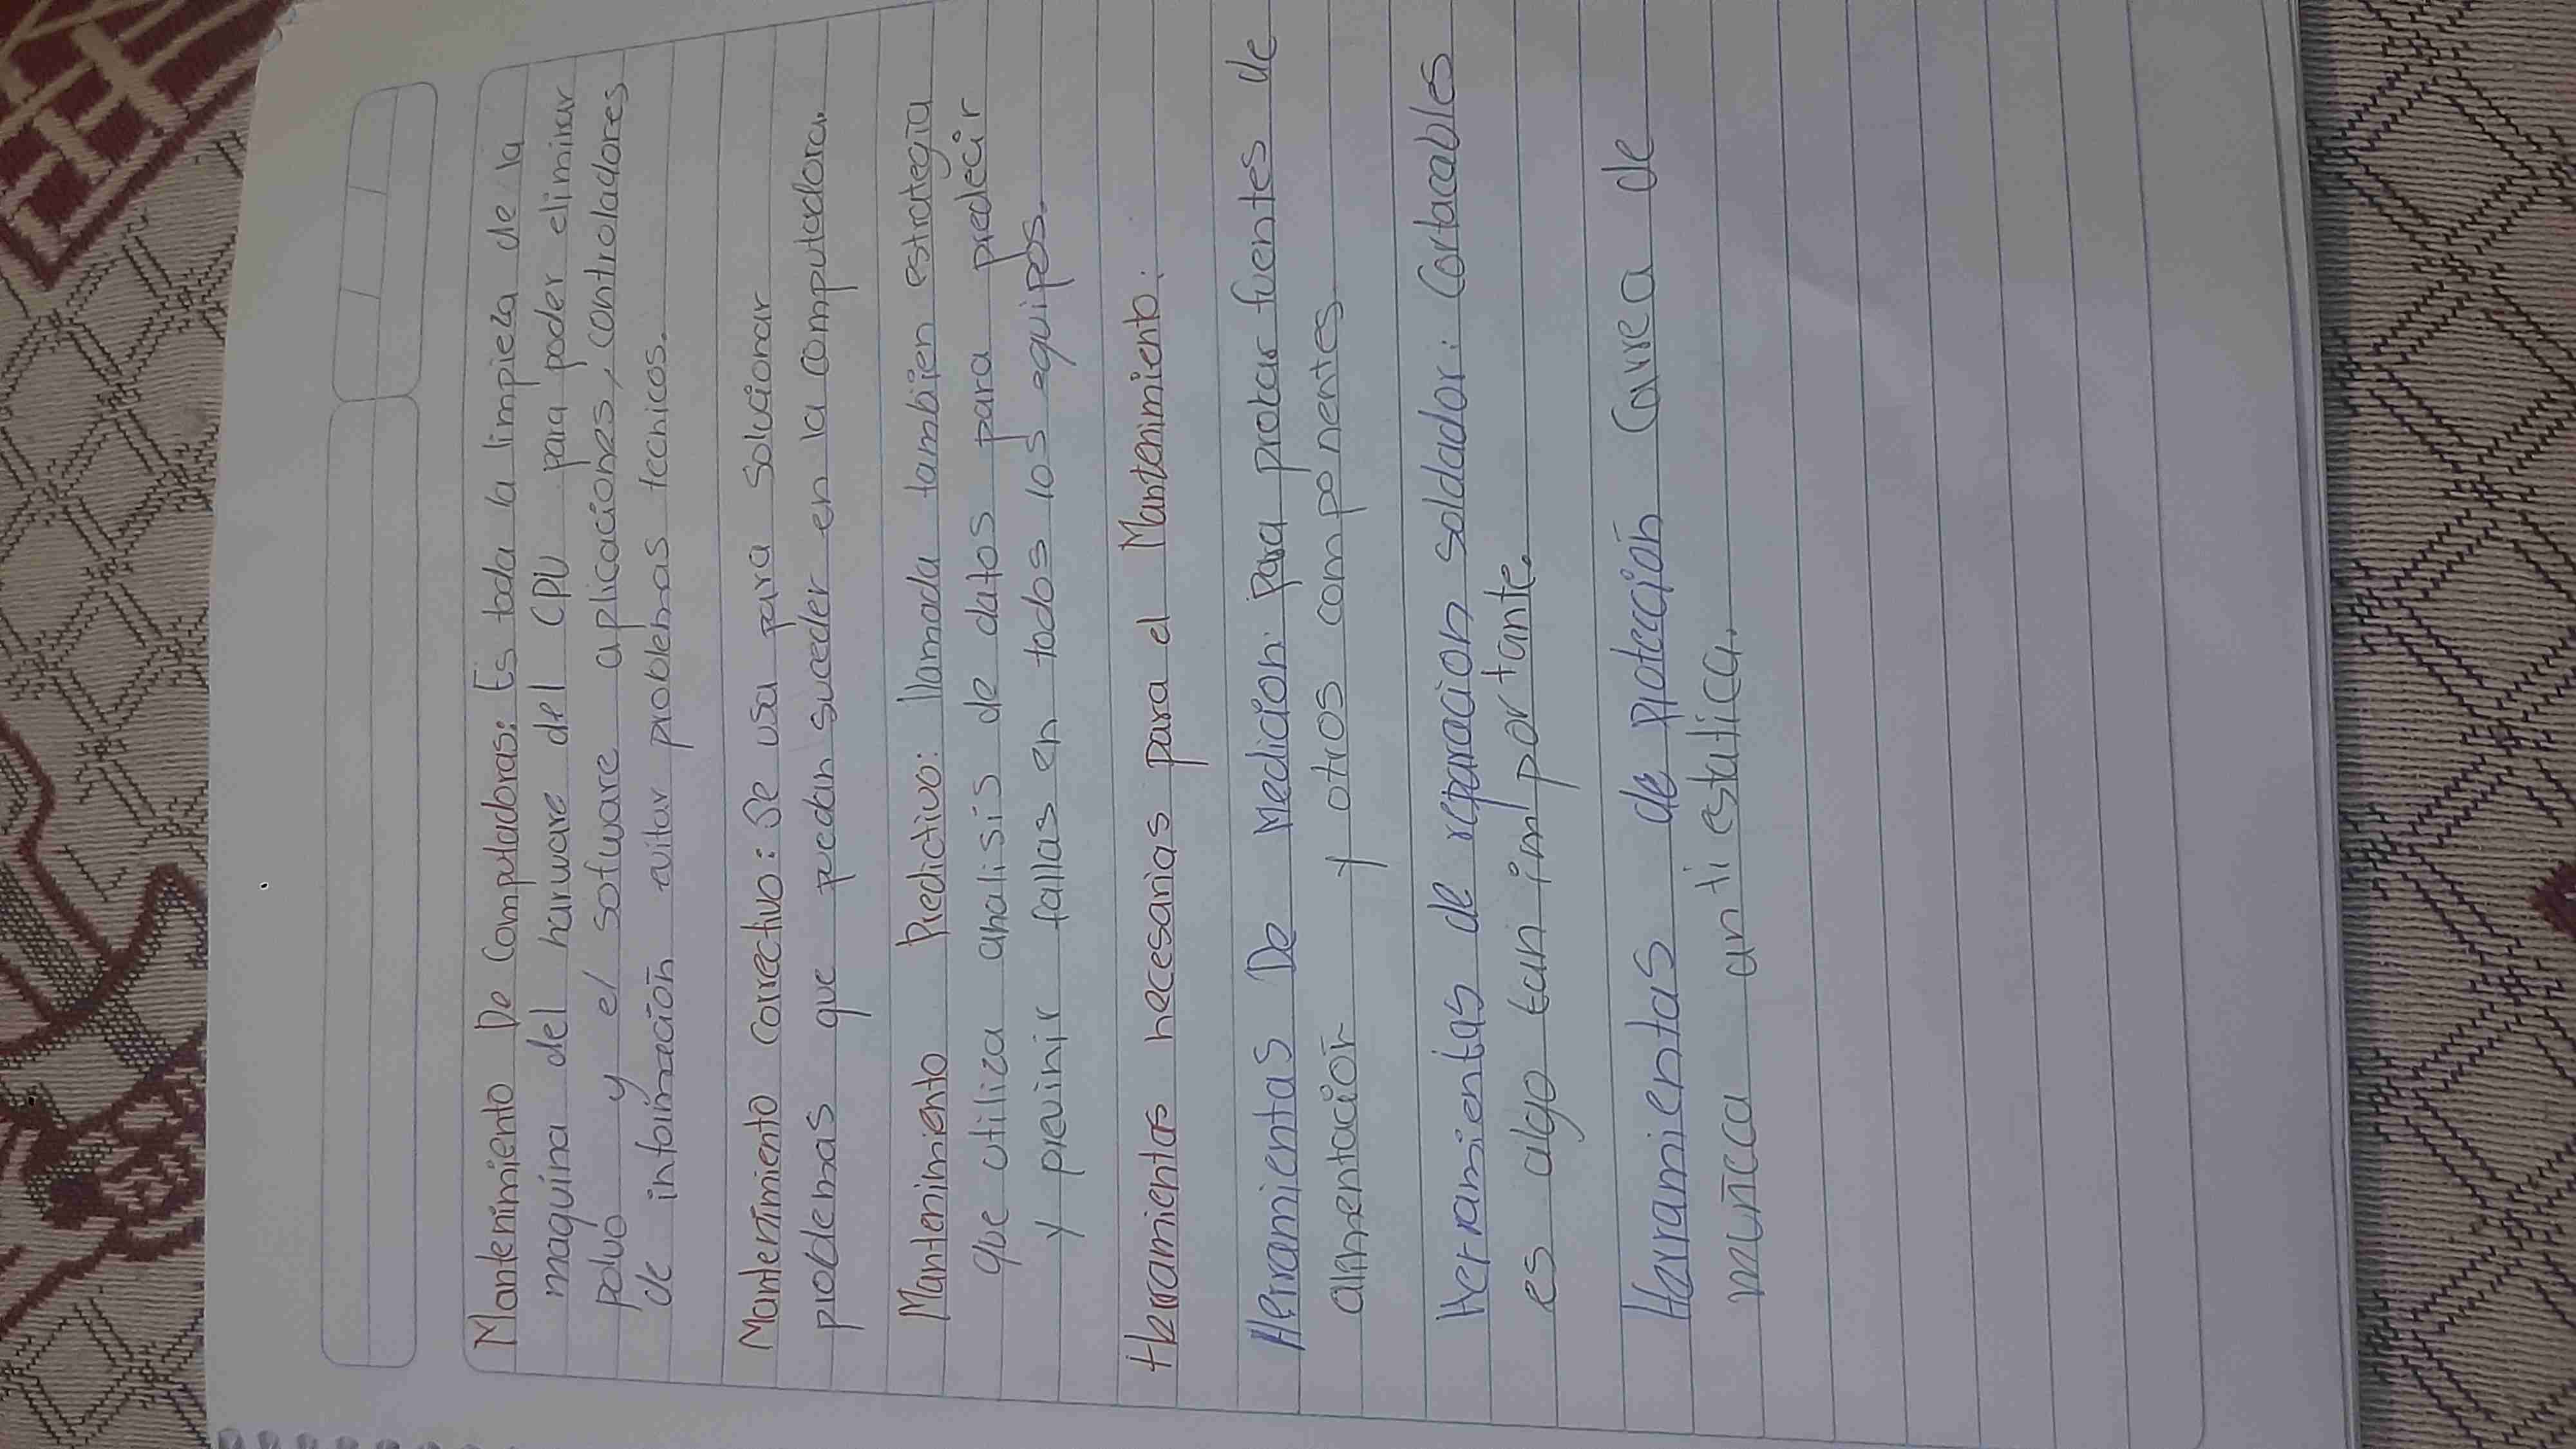 Mantenimiento De Computadoras: Es toda la limpieza de la
maquina del harware del CPU para poder eliminar
polvo y el sotware aplicaciones, controladores
de información evitar problemas tecnicos.
Mantenimiento correctivo: Se usa para solucionar
problemas que puedan suceder en la computadora.
Mantenimiento Predictivo: llamada tambien estrategia
que utiliza analisis de datos para predecir
y previnir fallas en todos los equipos.
Herramientas necesarias para el Mantenimiento:
Herramientas De Medicion: Para probar fuentes de
alimentación y otros componentes
Herramientas de reparacion soldador: Cortacables
es algo tan importante.
Herramientas de protección Correa de
muñeca antiestatica.